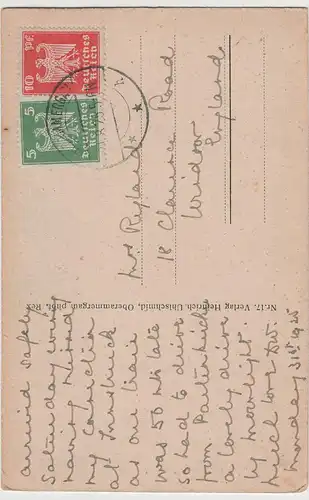 arrived safely
Saturday evening
having missed
my connection
at Innsbruck
as our train
was 50 mts late
so had to drive
from Partenkirchen
a lovely drive
by moonlight.
much love DW.
Monday 31st 1925
Nr.17. Verlag Heinrich Uhlschmid, Oberammergau phot. Rex
Mrs Ryland
18 Clarence Road
Windsor
England
10 Pf.
Deutsches
Reich
5 5
Deutsches
Reich